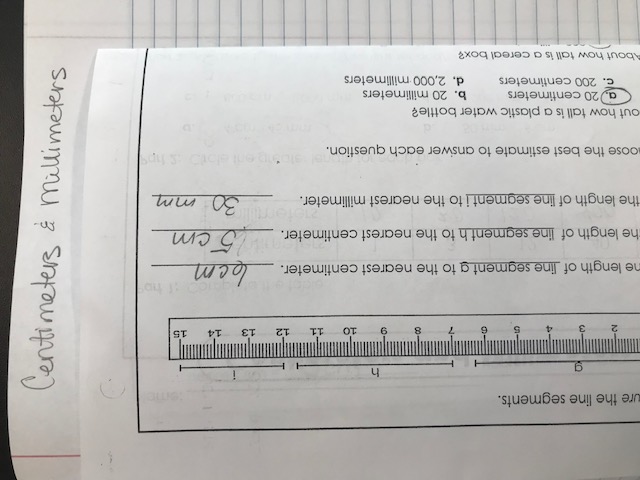 Centimeters & Millimeters
ure the line segments.
g h i
2 3 4 5 6 7 8 9 10 11 12 13 14 15
he length of line segment g to the nearest centimeter. 6cm
he length of line segment h to the nearest centimeter. 5 cm
the length of line segment i to the nearest millimeter. 30 mm
oose the best estimate to answer each question.
out how tall is a plastic water bottle?
a. 20 centimeters b. 20 millimeters
c. 200 centimeters d. 2,000 millimeters
bout how tall is a cereal box?